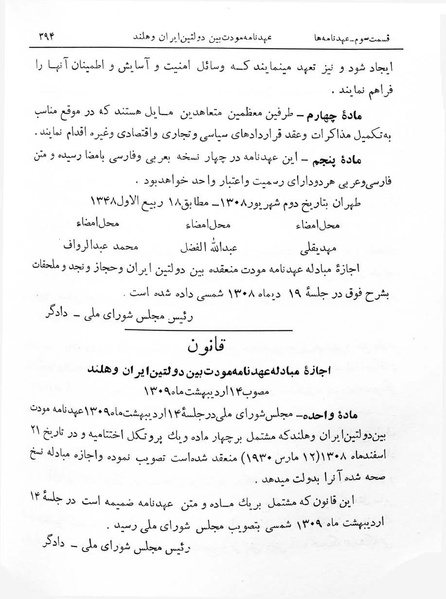 قسمت سوم ـ عهدنامه‌ها عهدنامه مودت بین دولتین ایران و هلند ۳۹۴
ایجاد شود و نیز تعهد مینمایند که وسائل امنیت و آسایش و اطمینان آنها را
فراهم نمایند .
مادهٔ چهارم ـ طرفین معظمین متعاهدین مایل هستند که در موقع مناسب
به تکمیل مذاکرات و عقد قراردادهای سیاسی و تجاری و اقتصادی وغیره اقدام نمایند.
مادهٔ پنجم ـ این عهدنامه در چهار نسخه بعربی وفارسی بامضا رسیده و متن
فارسی وعربی هر دو دارای رسمیت و اعتبار واحد خواهد بود .
طهران بتاریخ دوم شهریور ۱۳۰۸ ـ مطابق ۱۸ ربیع الاول ۱۳۴۸
محل امضاء محل امضاء محل امضاء
مهدیقلی عبدالله الفضل محمد عبدالرواف
اجازهٔ مبادله عهدنامه مودت منعقده بین دولتین ایران وحجاز ونجد و ملحقات
بشرح فوق در جلسهٔ ۱۹ دیماه ۱۳۰۸ شمسی داده شده است .
رئیس مجلس شورای ملی ـ دادگر
قانون
اجازهٔ مبادله عهدنامه مودت بین دولتین ایران وهلند
مصوب ۱۴ اردیبهشت ماه ۱۳۰۹
مادهٔ واحده ـ مجلس شورای ملی در جلسهٔ ۱۴ اردیبهشت ماه ۱۳۰۹ عهدنامه مودت
بین دولتین ایران وهلند که مشتمل بر چهار ماده و یك پروتکل اختتامیه و در تاریخ ۲۱
اسفندماه ۱۳۰۸ (۱۲ مارس ۱۹۳۰) منعقد شده است تصویب نموده و اجازه مبادله نسخ
صحه شده آنرا بدولت میدهد .
این قانون که مشتمل بریك ماده و متن عهدنامه ضمیمه است در جلسهٔ ۱۴
اردیبهشت ماه ۱۳۰۹ شمسی بتصویب مجلس شورای ملی رسید .
رئیس مجلس شورای ملی ـ دادگر